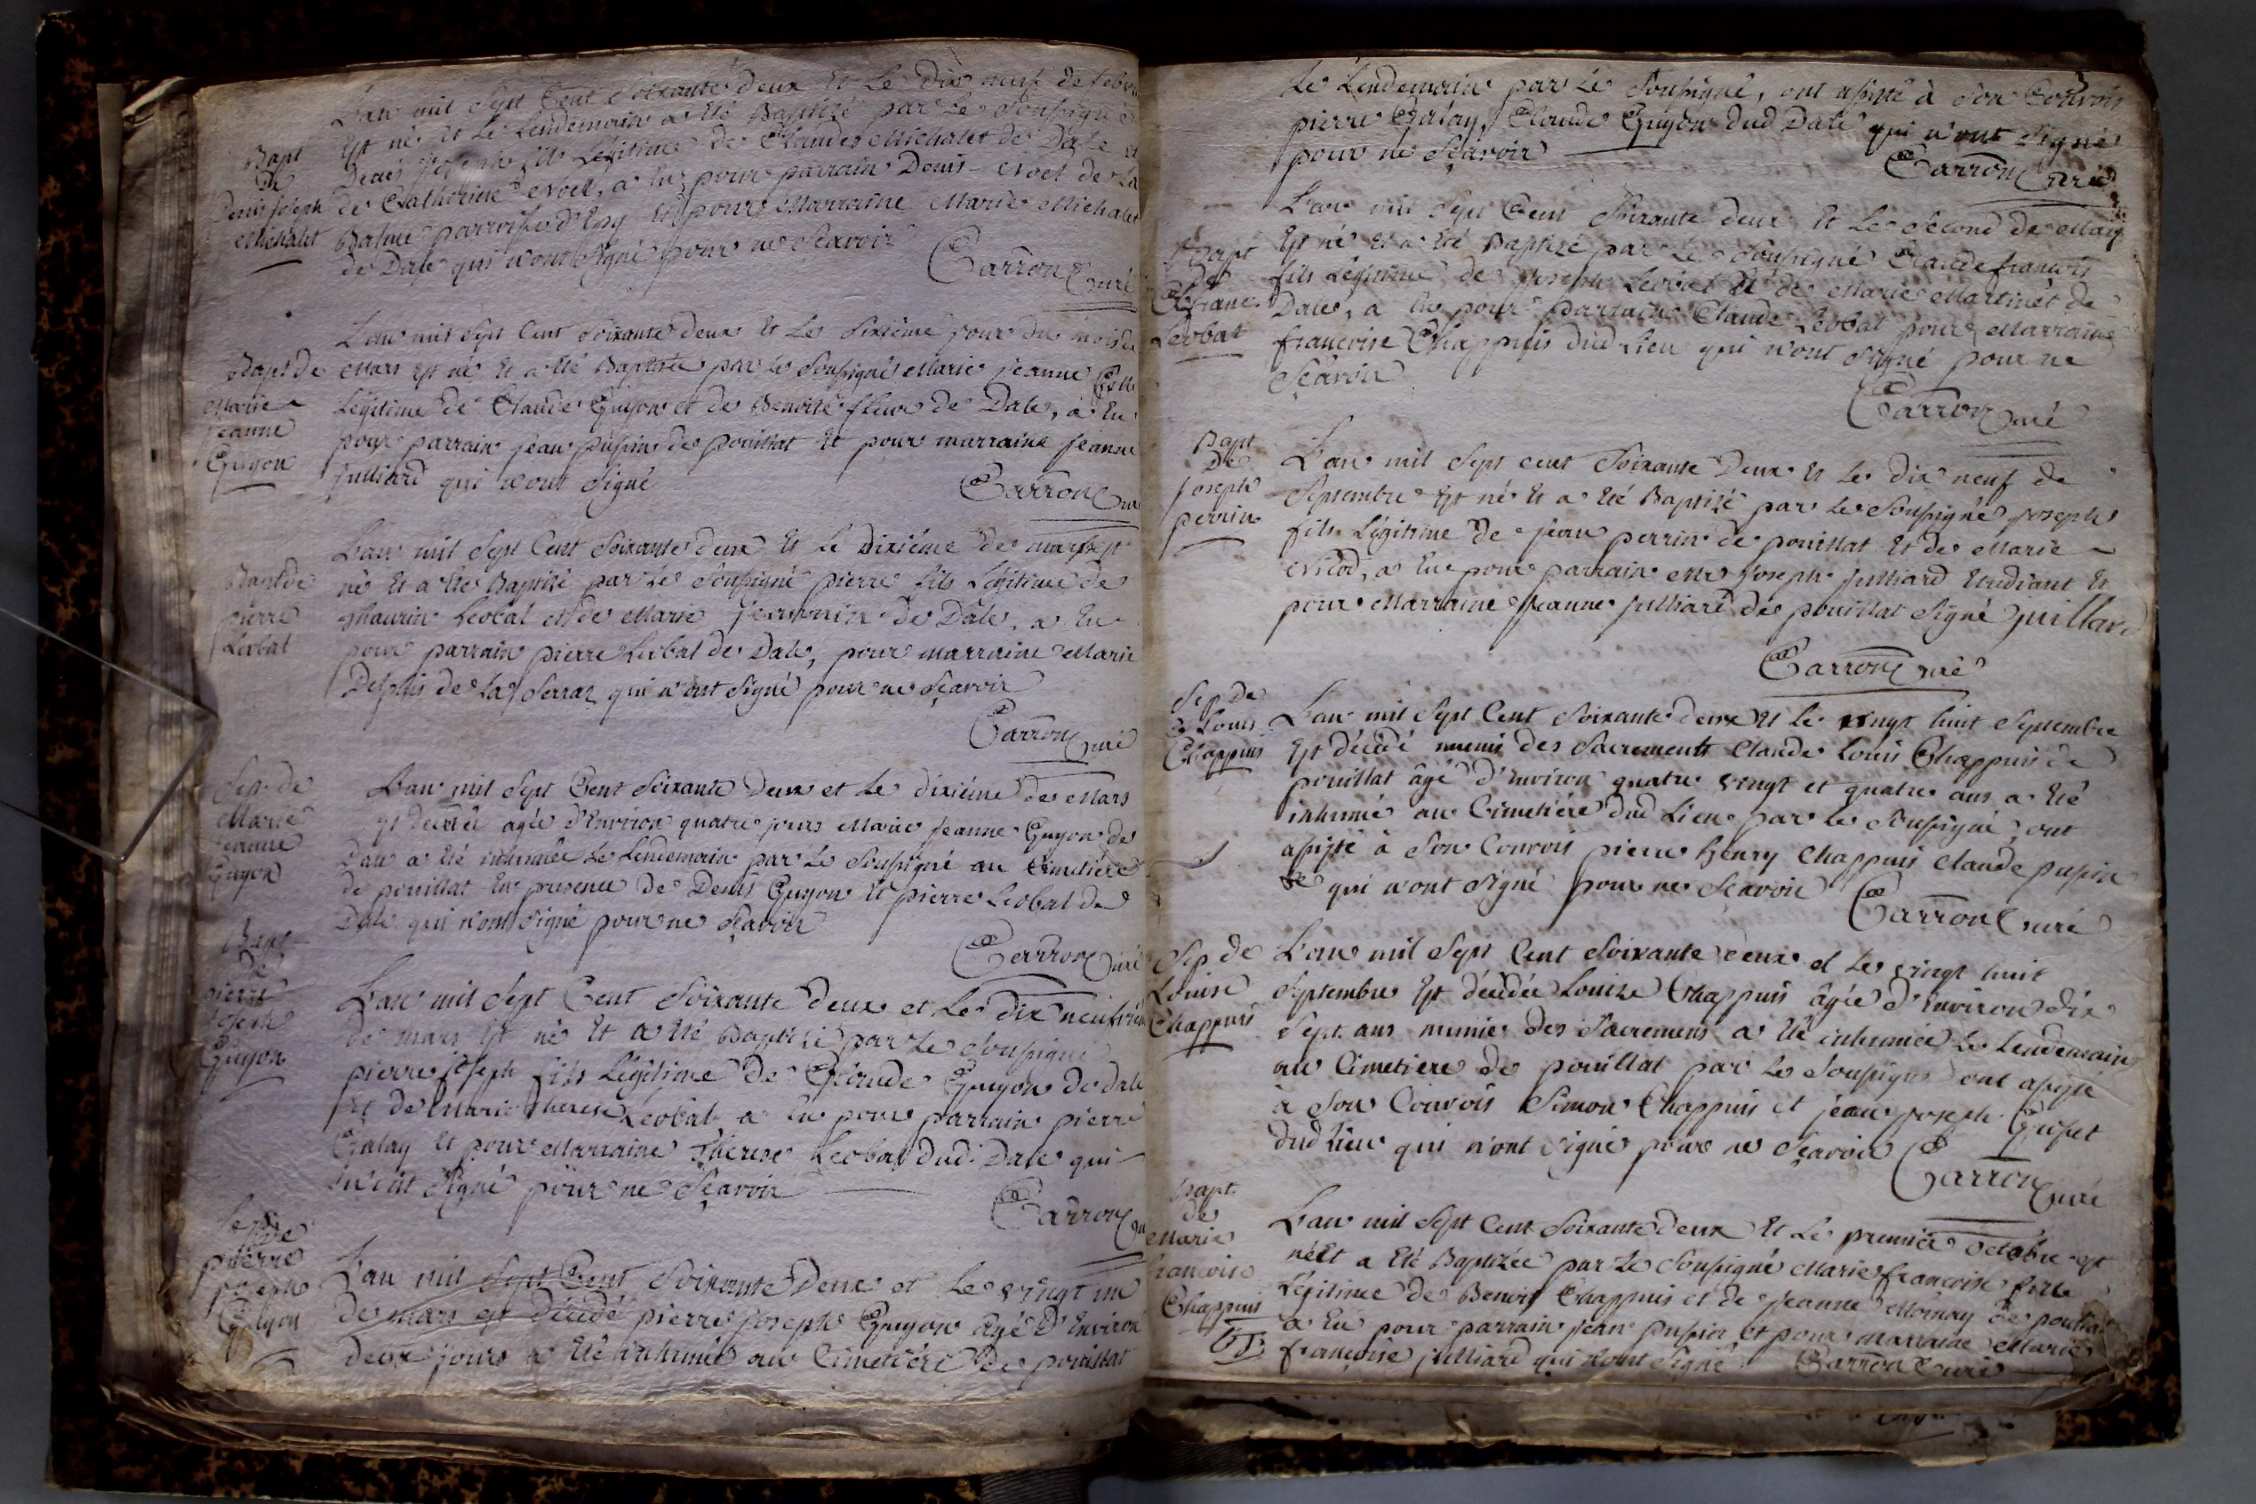 L'an mil Sept Cent Soixante deux Et Le Dix neuf de febv
Est né Et Le Lendemain a Eté Baptizé par Le Soussigné
Bapt
De
Denis Joseph
Michalet
Denis Joseph fils Légitime de Claude Michalet de Dale et
de Catherine Noel, a Eu pour parrain Denis Noel de La
Balme parroisse d'Epy Et pour Marraine Marie Michalet
de Dale qui n'ont signé pour ne Sçavoir
Carron Curé
L'an mil Sept Cent Soixante deux Et Le Sixième jour du mois de
Bapt De
Marie
Jeanne
Guyon
Mars Est né Et a Eté Baptizée par Le Soussigné Marie Jeanne fille
Légitime de Claude Guyon et de Benoite fleur de Dale, a Eu
pour parrain jean pupin de pouillat Et pour marraine Jeanne
Julliard qui n'ont Signé
Carron Cur
L'an mil Sept Cent Soixante deux Et Le Dixiéme de mars est
Bapt de
pierre
Leobat
né Et a Eté Baptizé par Le Soussigné pierre fils Légitime de
Leobat et de Marie de Dale, a Eu
pour parrain pierre Leobat de Dale, pour marraine Marie
de La Serraz qui n'ont Signé pour ne Sçavoir
Carron Curé
Sep. de
Marie
Jeanne
Guyon
L'an mil Sept Cent Soixante Deux et Le dixiéme de Mars
est décédée agée d'Environ quatre jours Marie Jeanne Guyon de
Dale a Eté inhumée Le Lendemain par Le Soussigné au Cimetiére
de pouillat En presence de Denis Guyon Et pierre Leobat de
Dale qui n'ont Signé pour ne Sçavoir
Carron Curé
Bapt
De
pierre
Joseph
Guyon
L'an mil Sept Cent Soixante deux et Le dix neufvié
de mars Est né Et a Eté Baptizé par Le Soussigné
pierre joseph fils Légitime de Claude Guyon de dale
et de Marie Therese Leobat a Eu pour parrain pierre
Galay Et pour Marraine Therese Leobat dud. Dale qui
n'ont Signé pour ne Sçavoir
Carron Cu
Sep. de
pierre
joseph
Guyon
L'an mil Sept Cent Soixante Deux et Le vingt un
de mars est décédé pierre joseph Guyon agé d'Environ
deux jours a Eté inhumé au Cimetiére de pouillat
Le Lendemain par Le Soussigné, ont assisté à Son Convois
pierre Galay, Claude Guyon dud Dale qui n'ont Signé
pour ne Sçavoir
Carron Curé
L'an mil Sept Cent Soixante deux Et Le Second de May
Bapt
De
Cl franc.
Leobat
Est né Et a Eté Baptizé par Le Soussigné Claude françois
fils Légitime de Joseph Leobat Et de Marie Martinet de
Dale, a Eu pour parrain Claude Leobat pour Marraine
francoise Chappuis dud Lieu qui n'ont Signé pour ne
Sçavoir
Carron Curé
Bapt
De
Joseph
perrin
L'an mil Sept cent Soixante Deux Et Le dix neuf de
Septembre Est né Et a Eté Baptizé par Le Soussigné Joseph
fils Légitime de jean perrin de pouillat Et de Marie
Nicod, a Eu pour parrain Mr joseph Julliard Etudiant Et
pour Marraine Jeanne Julliard de pouillat Signé Juilliard
Carron Curé
Sep. De
Cl. Louis
Chappuis
L'an mil Sept Cent Soixante deux Et Le vingt huit Septembre
Est décédé munis des Sacrements Claude Louis Chappuis de
pouillat âgé d'Environ quatre vingt et quatre ans a Eté
inhumé au Cimetiére dud Lieu par Le Soussigné, ont
assisté à Son Convois pierre henry Chappuis Claude pupin
qui n'ont Signé pour ne Sçavoir Carron Curé
Sep de
Louise
Chappuis
L'an mil Sept Cent Soixante deux et Le vingt huit
Septembre Est décédée Louise Chappuis âgée d'Environ dix
Sept ans munie des Sacremens a Eté inhumée Le Lendemain
au Cimetiére de pouillat par Le Soussigné ont assisté
à Son Convois Simon Chappuis et jean Joseph
dud Lieu qui n'ont Signé pour ne Sçavoir
Carron Curé
Bapt
de
Marie
francoise
Chappuis
L'an mil Sept Cent Soixante deux Et Le premier Octobre est
née Et a Eté Baptizée par Le Soussigné Marie francoise fille
Légitime de Benoit Chappuis et de Jeanne Moinay de pouillat
a Eu pour parrain jean pupin Et pour marraine Marie
françoise julliard qui n'ont Signé Carron Curé